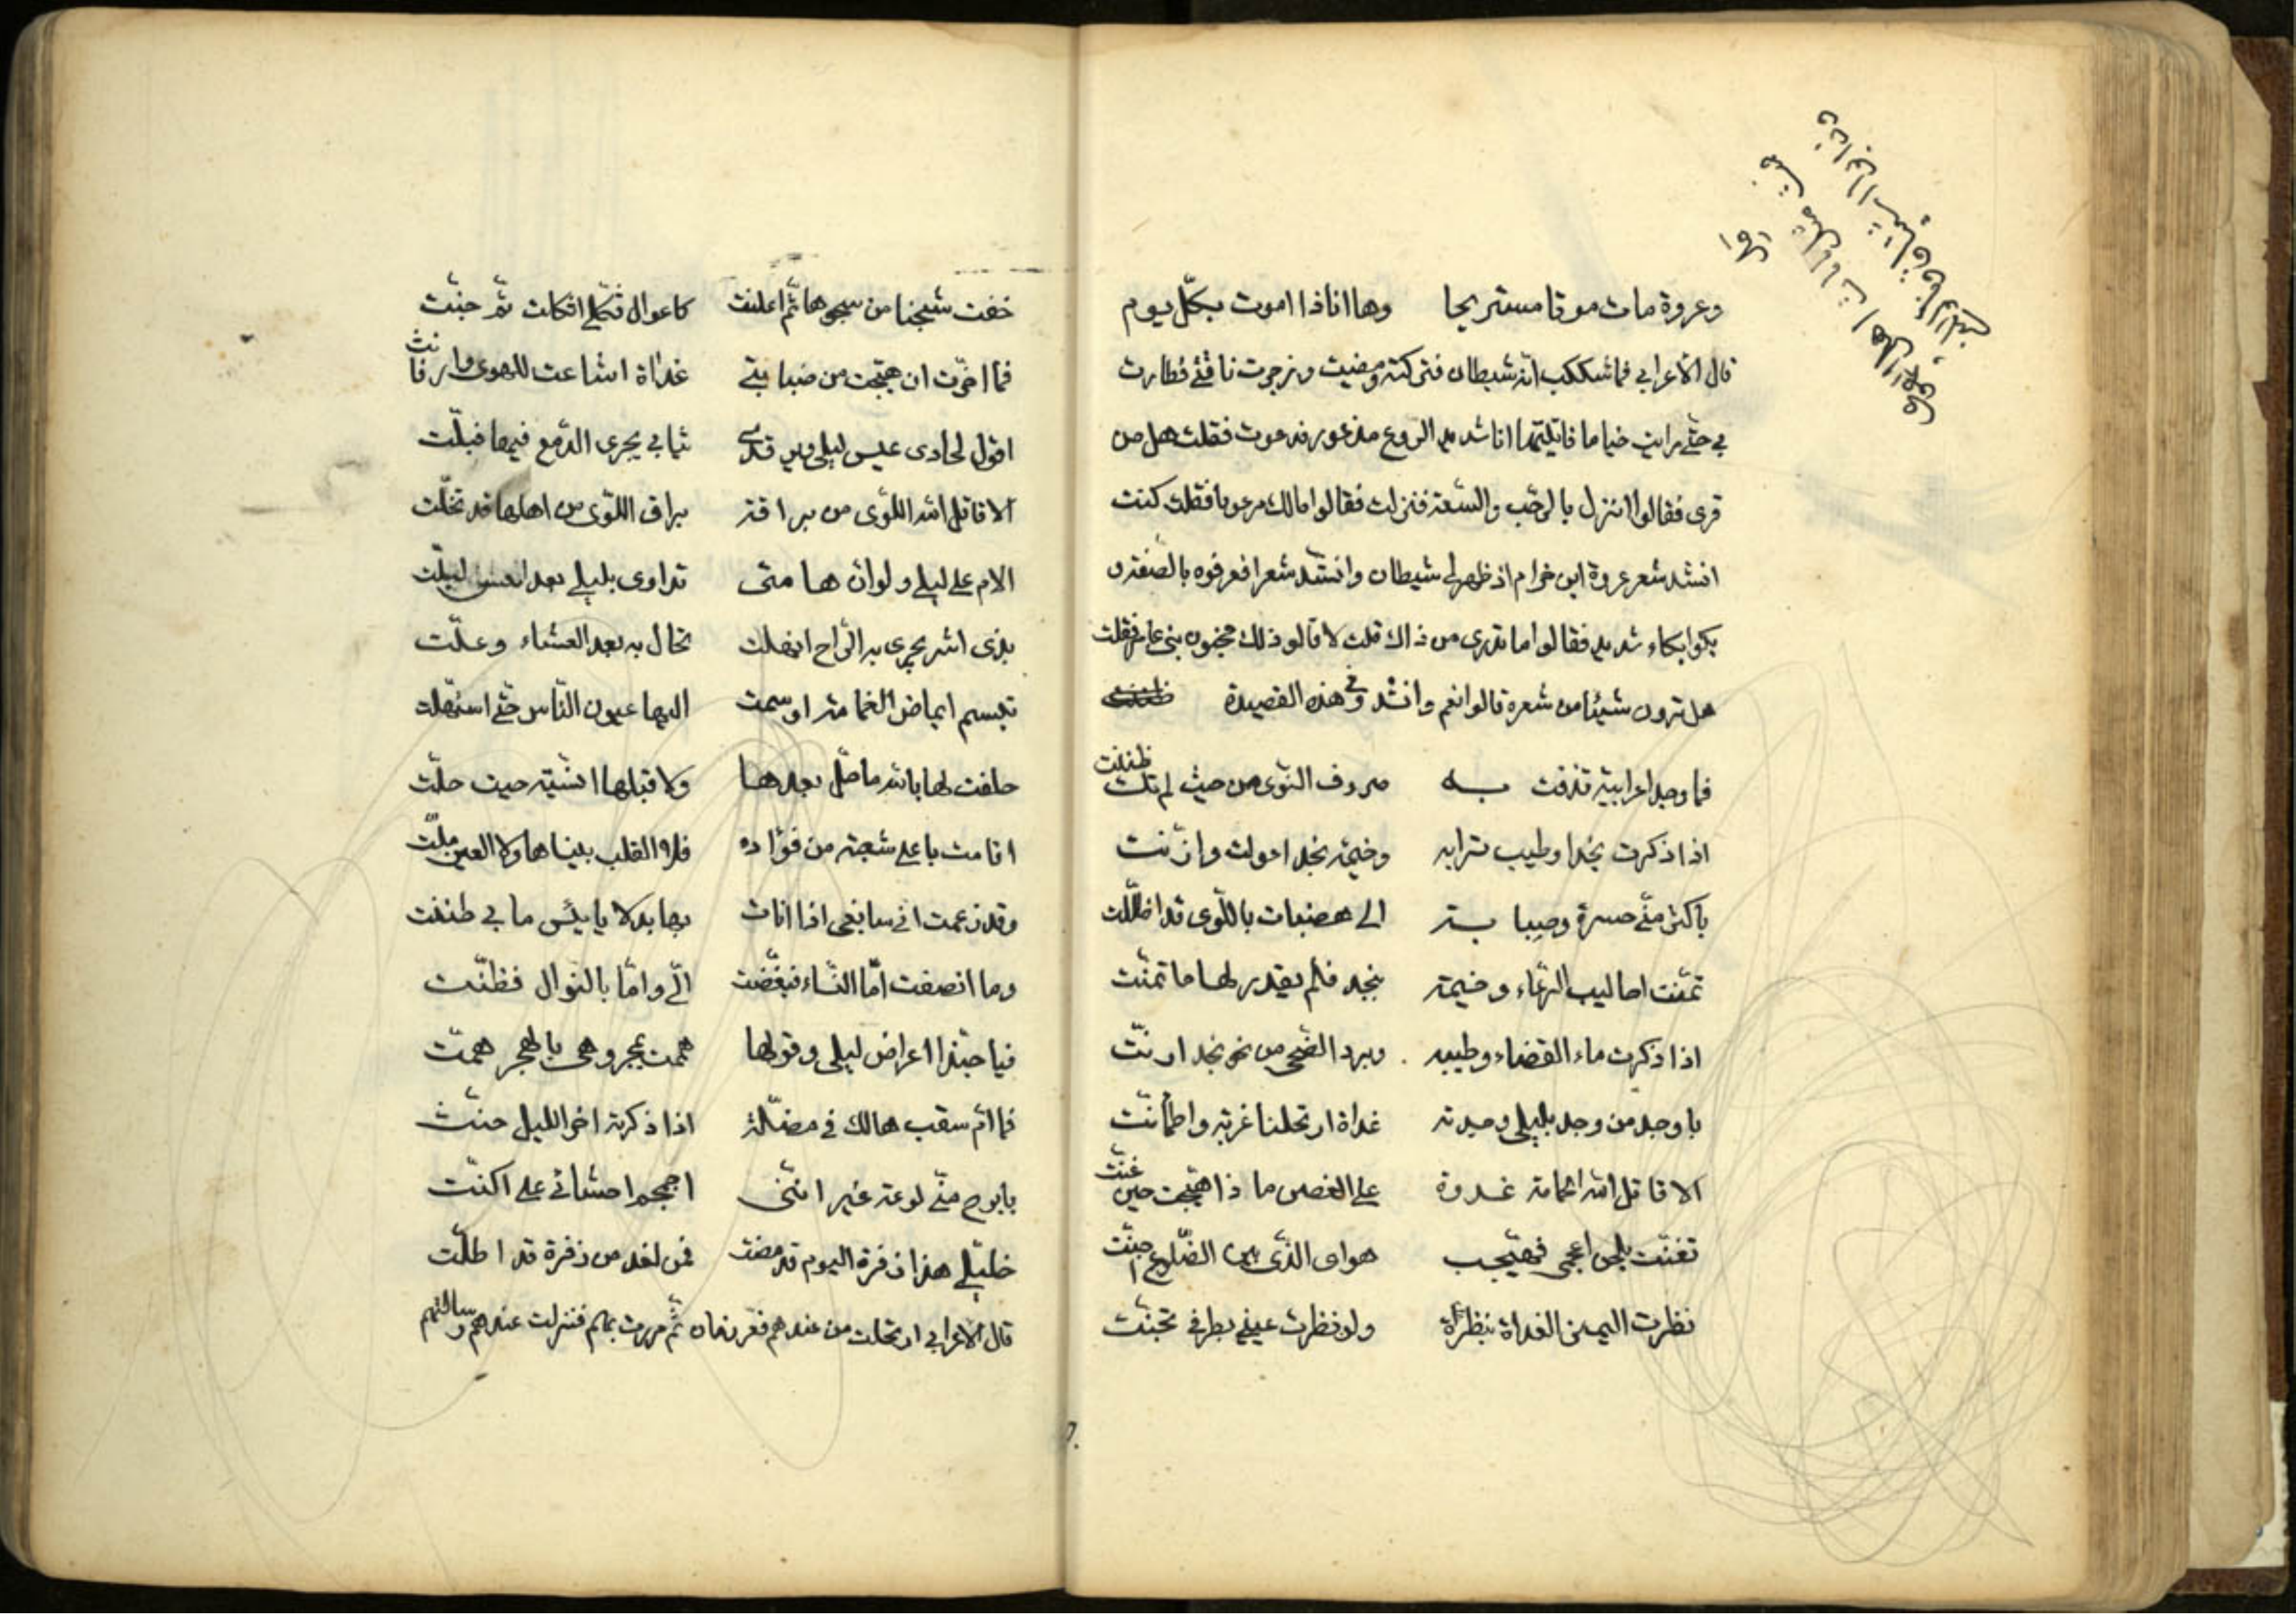 وعروة مات موتا مستريحا وها انا ذا اموت بكلّ يوم
قال الاعرابي فما شككت انه شيطان فتركته ومضيت وزجرت ناقتي فطارت
بي حتّى رايت خياما فقلت هل من
قرى فقالوا انزل بالرحب والسّعة فنزلت فقالوا مالك مرعوبا فقلت كنت
انشد شعر عروة ابن خرام اذ ظهر لي شيطان وانشد شعرا فعرفوه بالصّفة و
بكوا بكاء شديد فقالوا اما تدرى من ذاك قلت لا قالو ذلك مجنون بنى عامر فقلت
هل ترون شيئا من شعره قالوا نعم وانشدونى هذه القصيدة
فما وجد اعرابيّة قذفت به صروف النّوى من حيث لم تك ظنّت
اذا ذكرت نجدا وطيب ترابه وخيمة نجد اعولت وارنّت
باكثر منّى حسرة وصبابة الى هضبات باللّوى قد اظلّت
تمنّت احاليب الرّعاء وخيمة بنجد فلم يقدر لها ما تمنّت
اذا ذكرت ماء القضاء وطيبه وبرد الضّحى من نحو نجد ارنّت
باوجد من وجد بليلى وجدته غداة ارتحلنا غربة واطمانّت
الا قاتل الله الحمامة غدوة على الغصن ما ذا هيّجت حين غنّت
تغنّت بلحن اعجمى فهيّجت هواى الذّى بين الضّلوع اجنّت
نظرت اليمن الغداة بنظرة ولو نظرت عينى بطرفى تجنّت
خفت شجنا من شجوها ثم اعلنت كاعوال ثكلى اثكلت ثمّ حنّت
فما اخرّت ان هيّجت من صبابتى غداة اشاعت للهوى وارفانّت
اقول لحادى عيس ليلى وقد ثيابي يجرى الدّمع فيها فبلّت
الا قاتل الله اللّوى من براقة براق اللّوى من اهلها قد تخلّت
الام على ليلى ولو ان هامتى تداوى بليلى بعد لبلّت
بذى اشر يجرى به الرّاح انهلت تخال به بعد العشاء وعلّت
تبسم ايماض الغمامة اوسمت اليها عيون النّاس حتّى استهلت
حلفت لها بالله ما حلّ بعدها ولا قبلها انسيّة حيث حلّت
اقامت باعلى شعبة من فؤاده فلا القلب ينساها ولا العين ملّت
وقد زعمت انى سابغى اذا نات بها بدلا يا بئس ما بي ظننت
وما انصفت امّا النّساء فبغّضت الىّ وامّا بالنّوال فظنّت
فيا حبّذا اعراض ليلى وقولها هممت بهجر وهى بالهجر همت
فما امّ سقب هالك فى مضلّة اذا ذكرته اخر الليل حنّت
بابرح منّى لوعة غير انّنى اجمجم احشائى على ما اكنّت
خليلى هذا زفرة اليوم قد مضت فمن لغد من زفرة قد اطلّت
قال الاعرابي ارتحلت من عندهم ثمّ مررت بهم فنزلت عندهم وسالتهم